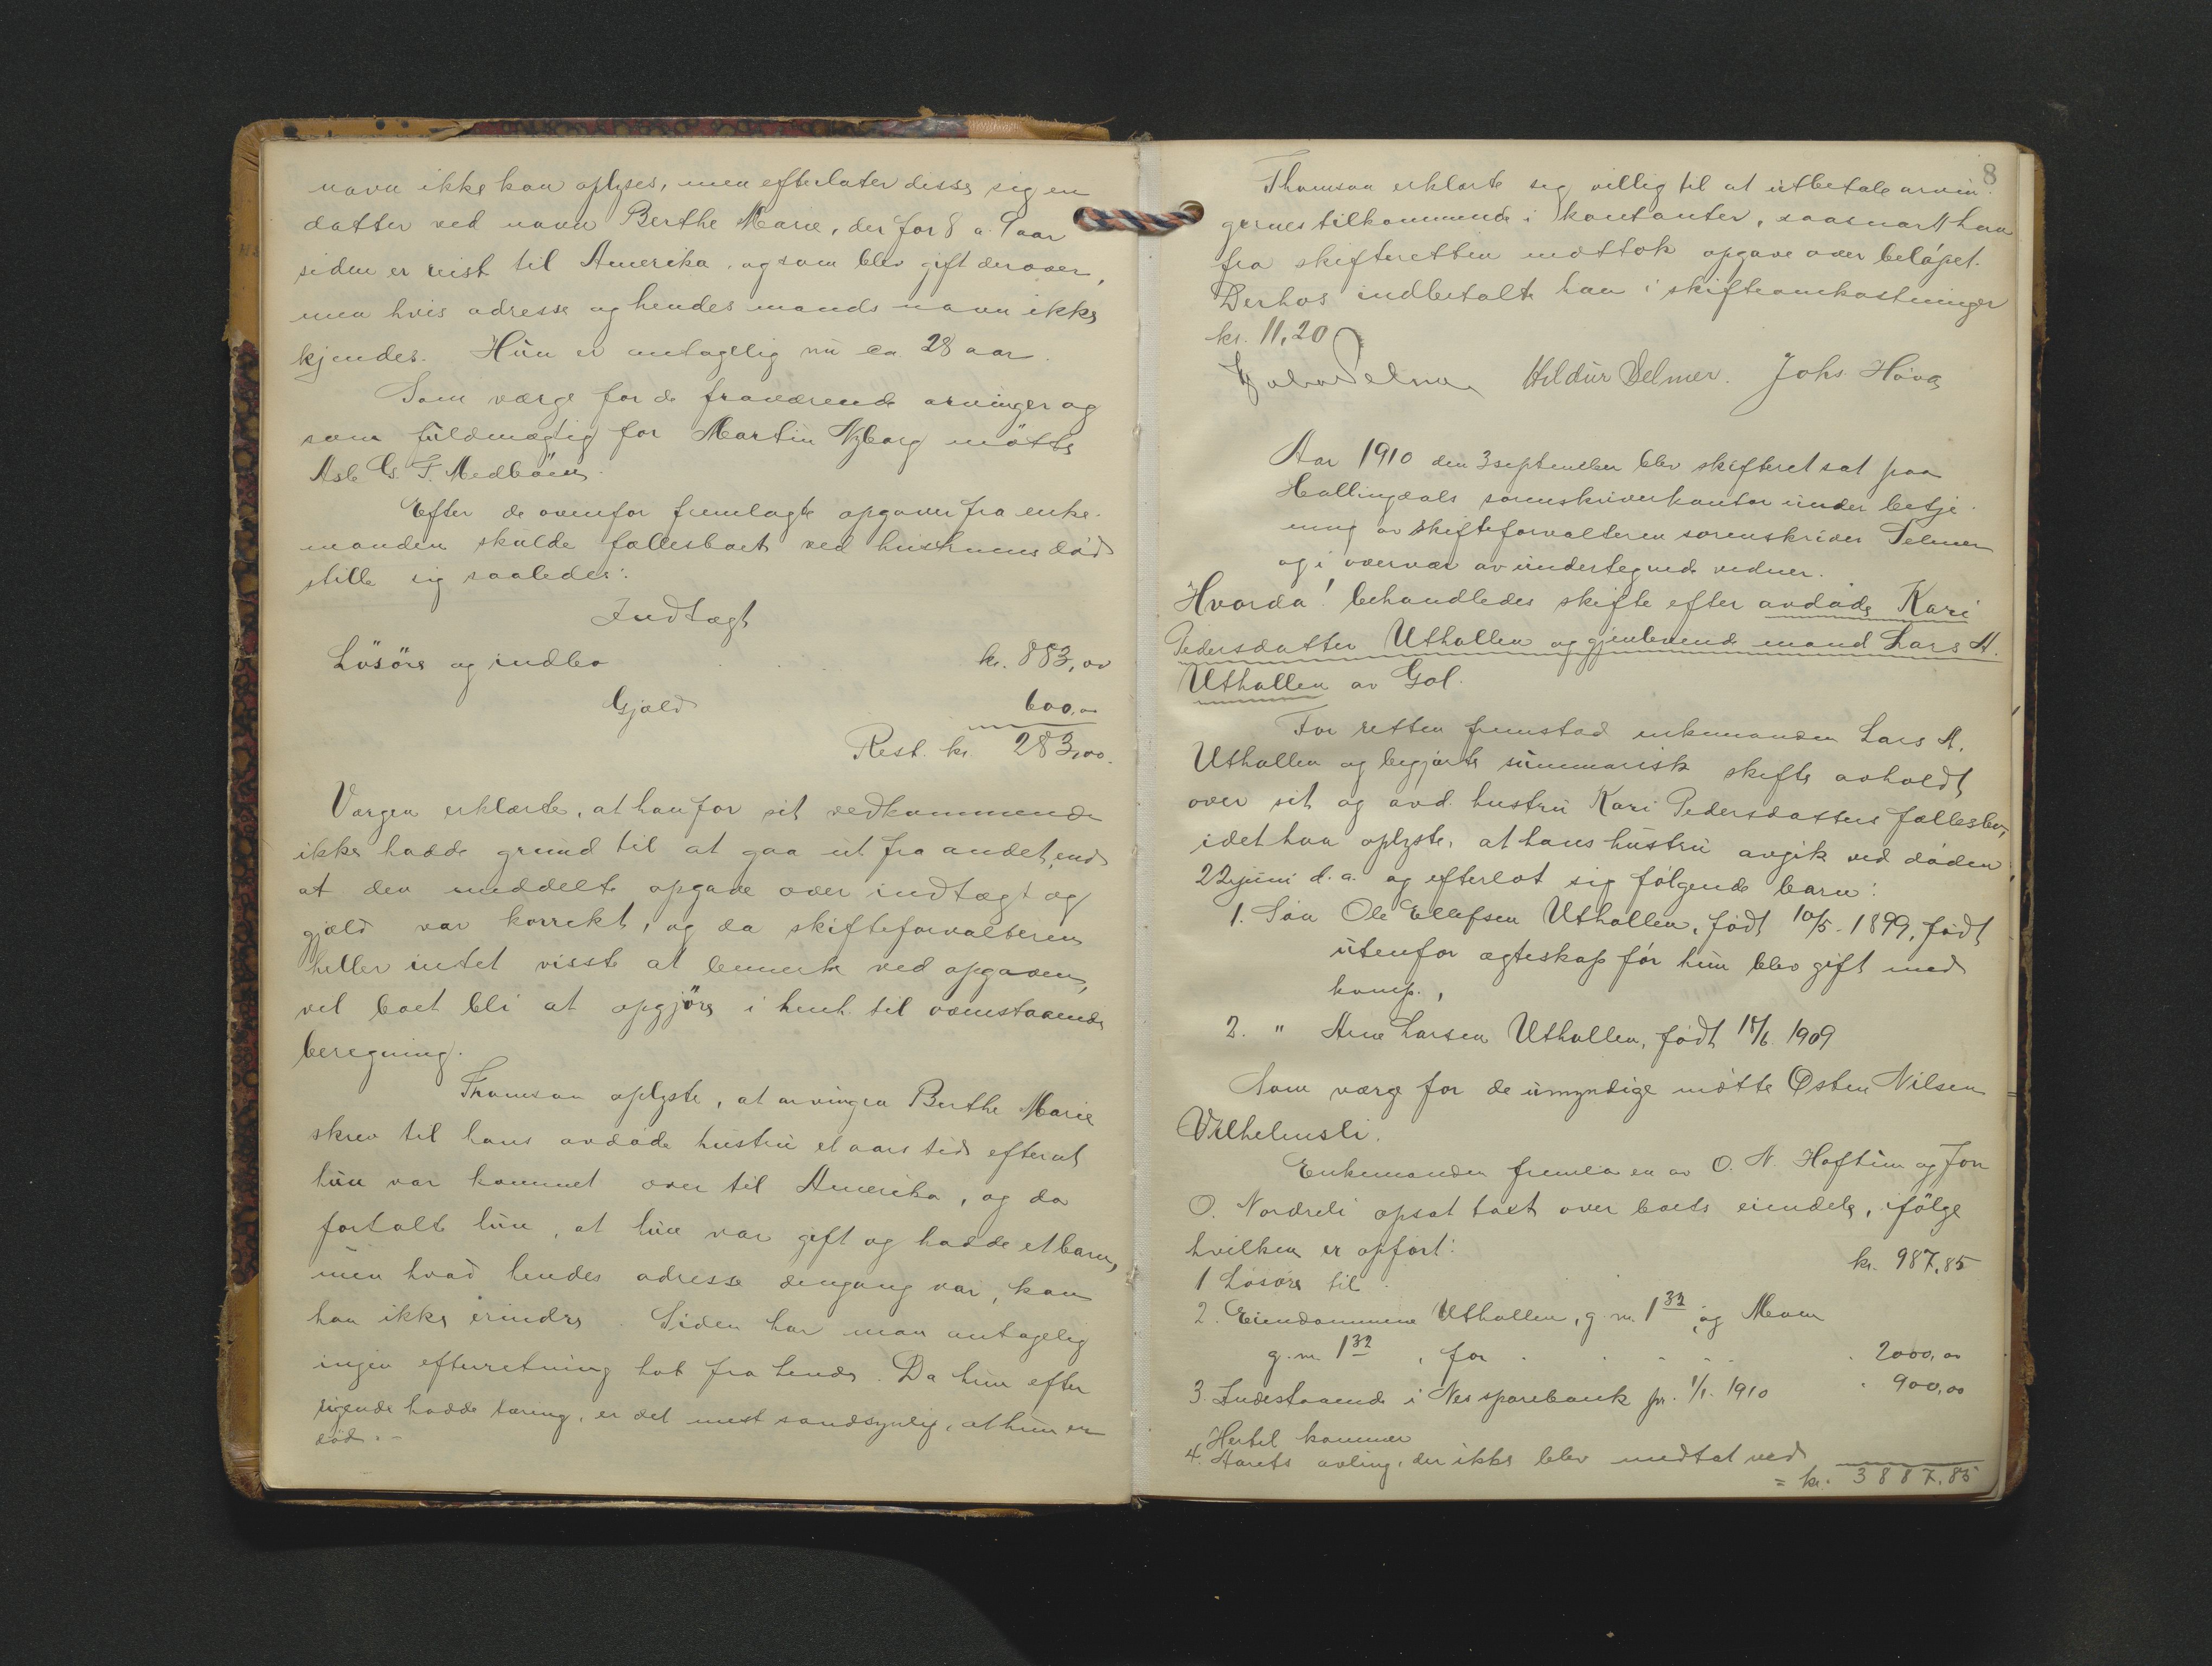 navn ikke kan oplyses, men efterlater disse sig en
datter ved navn Berthe Marie, der for 8 a 9 aar
siden er reist til Amerika, og som blev gift derover,
men hvis adresse og hendes mands navn ikke
kjendes. Hun er antagelig nu ca 28 aar.
Som værge for de fraværende arvinger og
som fuldmægtig for Martin Nyborg møtte
Asle G. T. Medbøen.
Efter de ovenfor fremlagte opgaver fra enke-
manden skulde fællesboet ved hustruens død
stille sig saaledes:
Indtægt
Løsøre og indbo kr. 883,00
Gjæld 600,00
Rest. kr. 283,00.
Værgen erklærte, at han for sit vedkommende
ikke hadde grund til at gaa ut fra andet, end
at den meddelte opgave over indtægt og
gjæld var korrekt, og da skifteforvalteren
heller intet visste at bemerke ved opgaven,
vil boet bli at opgjøre i henh. til ovenstaaende
beregning.
Thomson oplyste, at arvingen Berthe Marie
skrev til hans avdøde hustru et aars tid efterat
hun var kommet over til Amerika, og da
fortalte hun, at hun var gift og hadde et barn,
men hvad hendes adresse dengang var, kan
han ikke erindre. Siden har man antagelig
ingen efterretning hat fra hende. Da hun efter
sigende hadde tæring, er det mest sandsynlig, at hun er
død.-
8
Thomson erklærte sig villig til at utbetale arvin-
gernes tilkommende i kontanter, saasnart han
fra skifteretten mottok opgave over beløpet.
Derhos indbetalte han i skifteomkostninger
kr. 11,20
Selmer Hildur Selmer. Johs. Høva
Aar 1910 den 3 september blev skifteret sat paa
Hallingdals sorenskriverkontor under betje-
ning av skifteforvalteren sorenskriver Selmer
og i overvær av undertegnede vidner.
Hvorda! behandledes skifte efter avdøde Kari
Pedersdatter Uthallen og gjenlevende mand Lars A.
Uthallen av Gol.
For retten fremstod enkemanden Lars A.
Uthallen og begjærte summarisk skifte avholdt
over sit og avd. hustru Kari Pedersdatters fællesbo,
idet han oplyste, at hans hustru avgik ved døden
22 juni d.a. og efterlot sig følgende barn:
1. Søn Ole Elefsen Uthallen, født 10/5-1899, født
utenfor ægteskap før hun blev gift med
komp.,
2. " Arne Larsen Uthallen, født 18/6 1909
Som værge for de umyndige møtte Østen Nilsen
Vilhelmsli.
Enkemanden fremla en av O. N. Haftun og Jon
O. Nordreli opsat takst over boets eiendele, ifølge
hvilken er opført:
1 Løsøre til kr. 987,85
2. Eiendommene Uthallen, g. nr. 1 33 og Moen
g. nr. 1 32, for 2000,00
3. Indestaaende i Nes sparebank pr. 1/1. 1910 900,00
Hertil kommer
4. Aarets avling, der ikke blev medtat ved
= kr. 3887,85